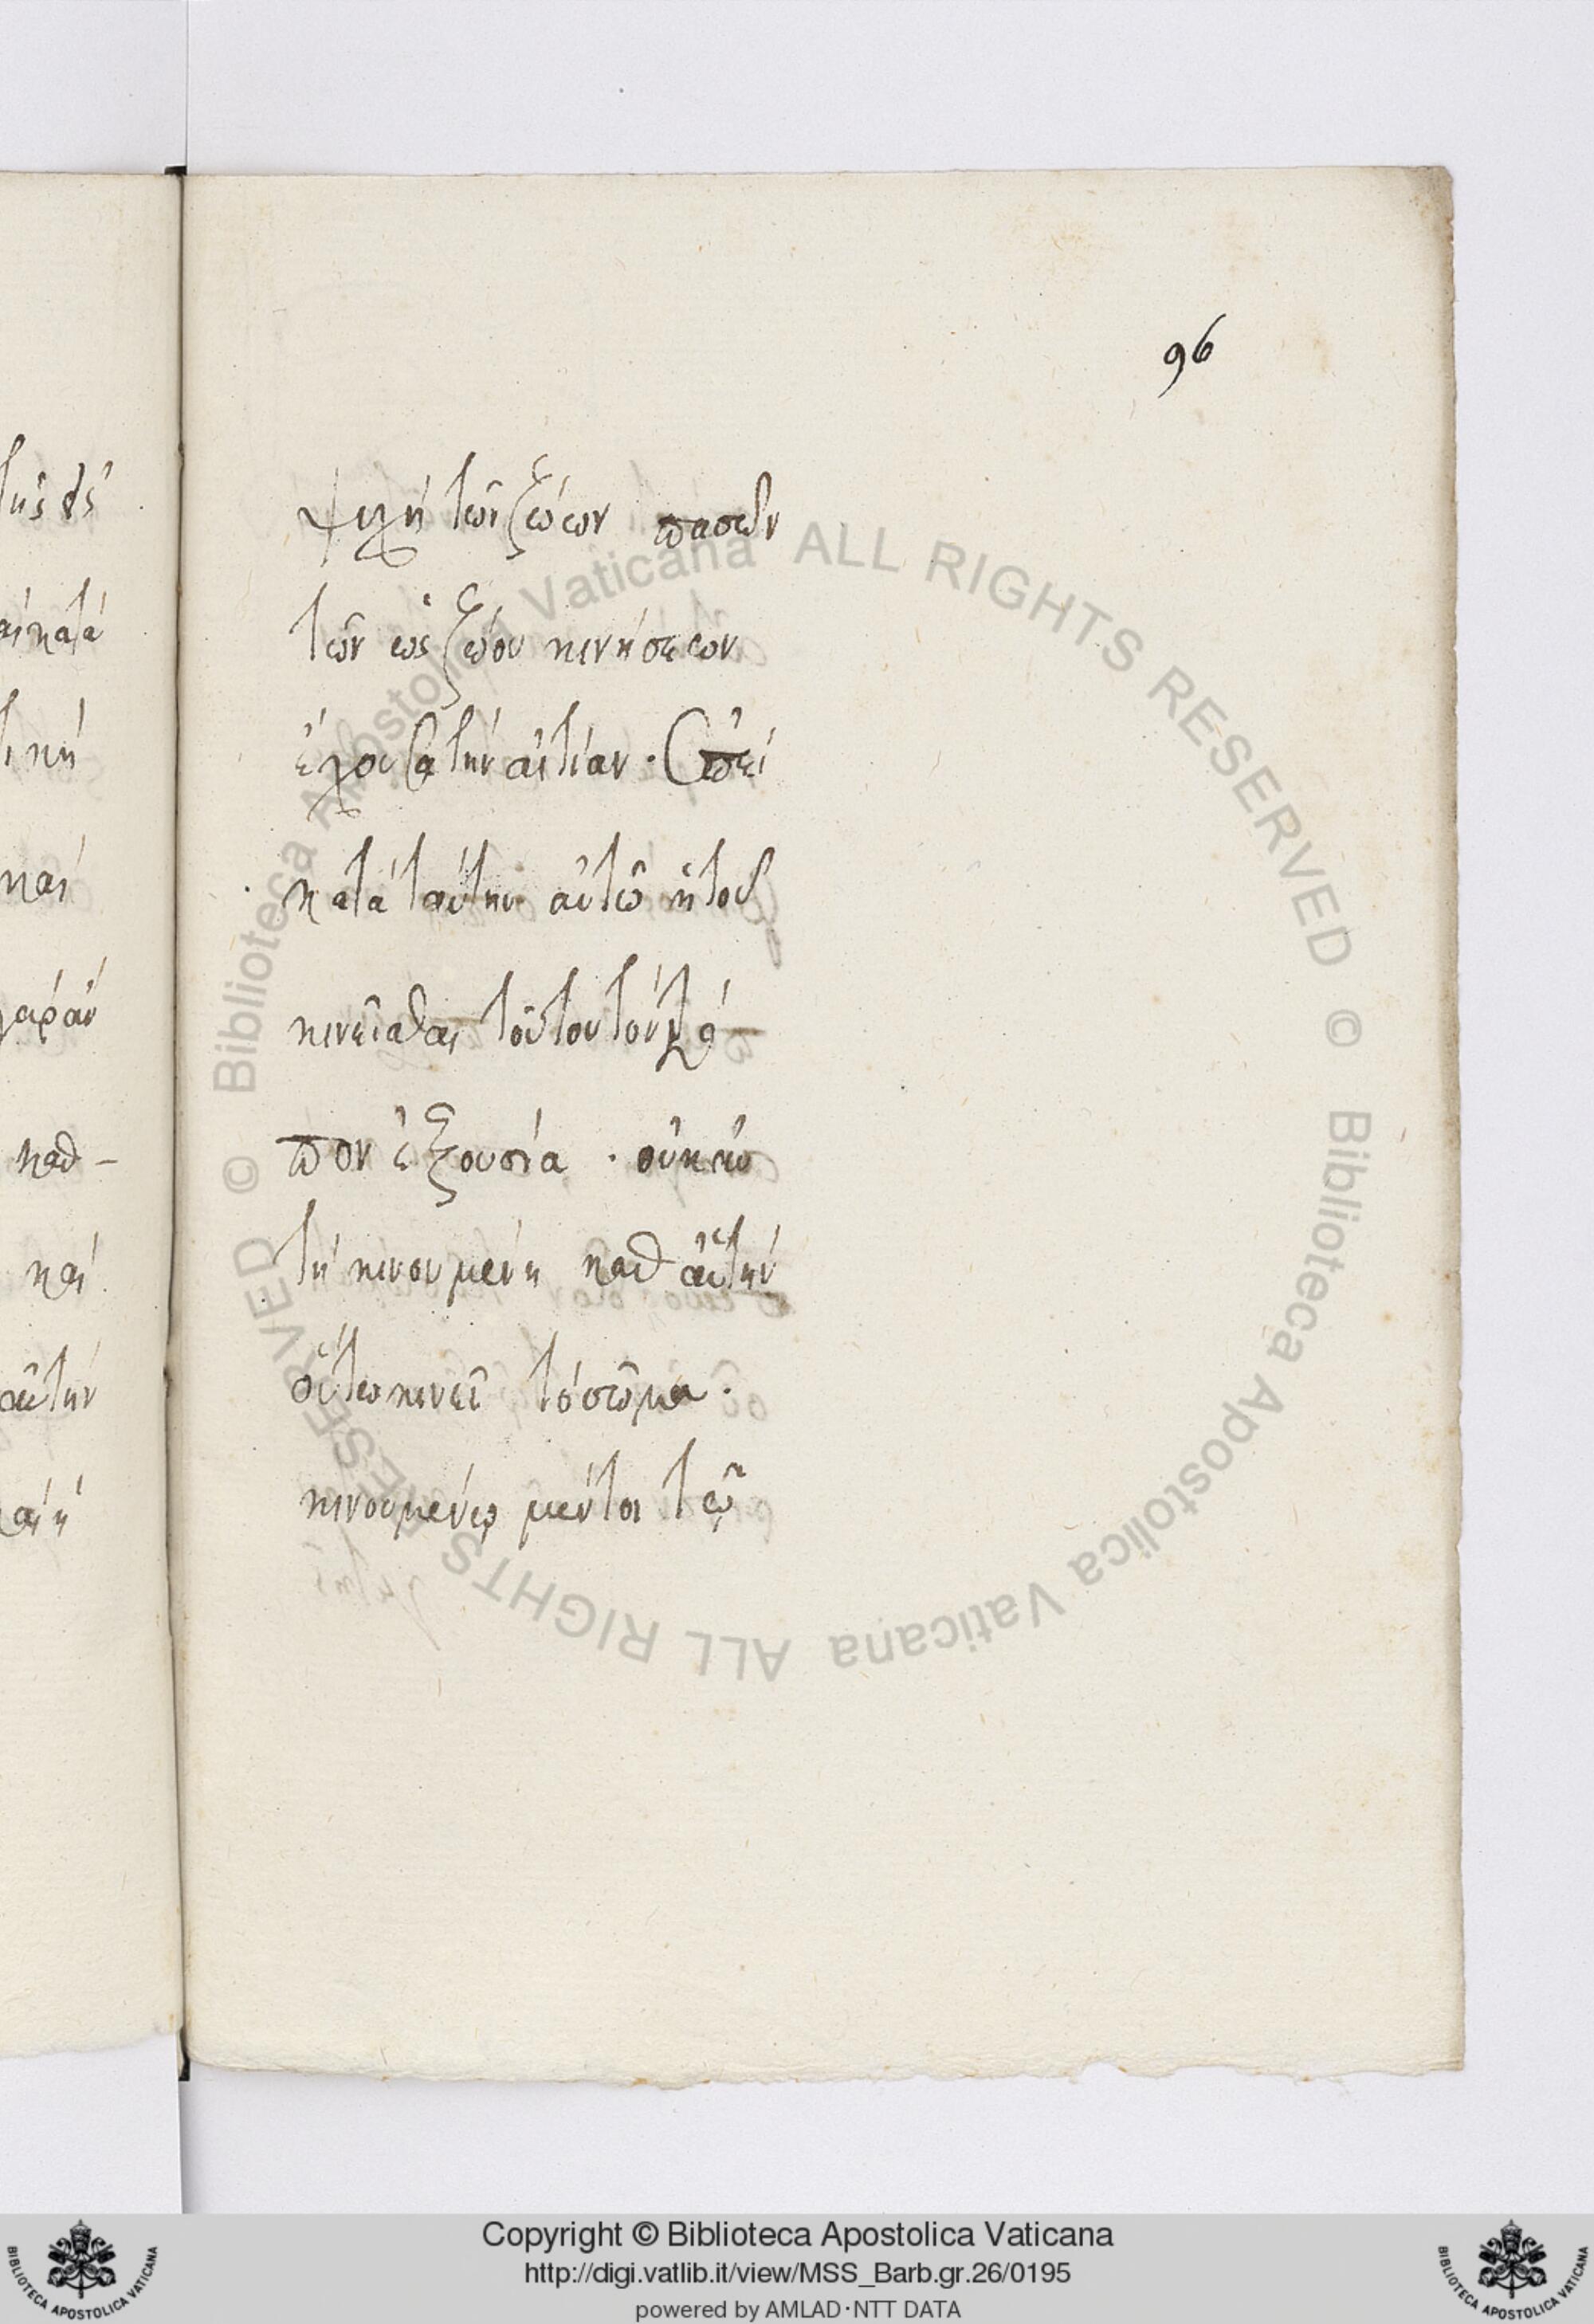 96
ψυχὴ τῶν ζώων πασῶν
τῶν ὡς ζώου κινήσεων
ἔχουσα τὴν αἰτίαν. ἐπεὶ
κατὰ ταύτην αὐτῶ ἡ τοῦ
κινεῖσθαι τοῦτον τὸν τρό-
πον ἐξουσία. οὐκ ἐν
τῆ κινουμένη καθ αὑτὴν
οὕτω κινεῖ τὸ σῶμα.
κινουμένω μέντοι τῶ
τῆς δὲ
κατὰ
καὶ
καθ-
καὶ
αὐτὴν
© Biblioteca Apostolica Vaticana ALL RIGHTS RESERVED © Biblioteca Apostolica Vaticana ALL RIGHTS RESERVED
Copyright © Biblioteca Apostolica Vaticana
http://digi.vatlib.it/view/MSS_Barb.gr.26/0195
powered by AMLAD·NTT DATA
BIBLIOTECA APOSTOLICA VATICANA
BIBLIOTECA APOSTOLICA VATICANA